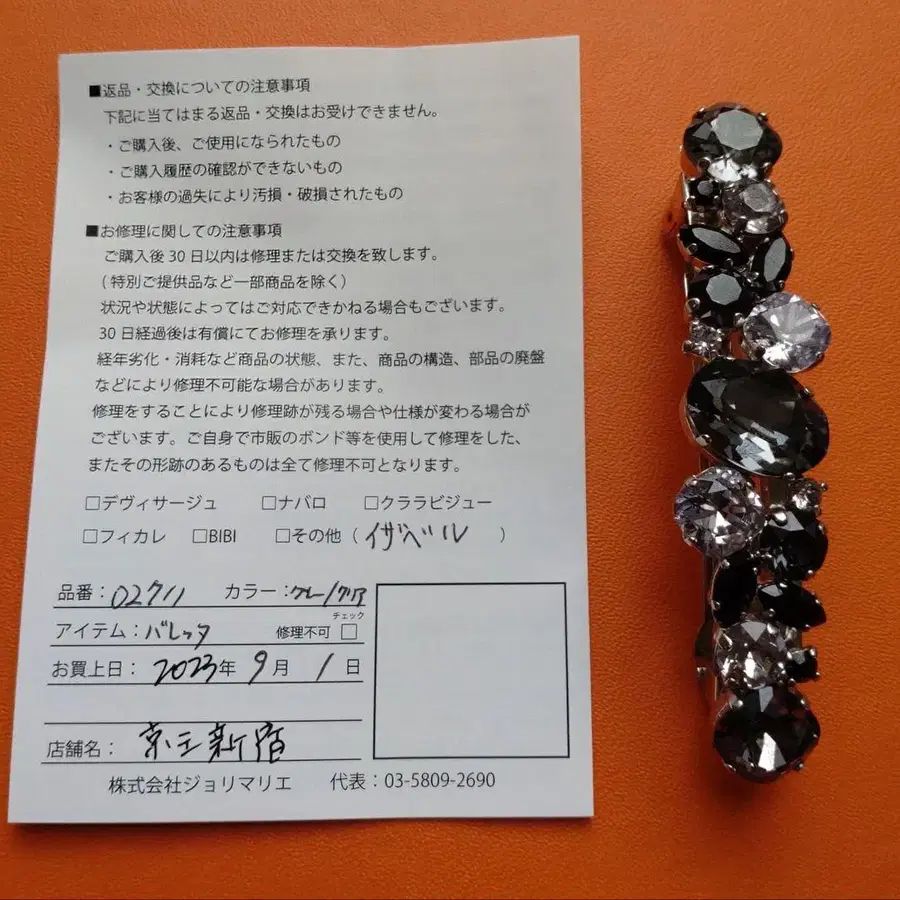 ■返品・交換についての注意事項
下記に当てはまる返品・交換はお受けできません。
・ご購入後、ご使用になられたもの
・ご購入履歴の確認ができないもの
・お客様の過失により汚損・破損されたもの
■お修理に関しての注意事項
ご購入後30日以内は修理または交換を致します。
(特別ご提供品など一部商品を除く)
状況や状態によってはご対応できかねる場合もございます。
30日経過後は有償にてお修理を承ります。
経年劣化・消耗など商品の状態、また、商品の構造、部品の廃盤
などにより修理不可能な場合があります。
修理をすることにより修理跡が残る場合や仕様が変わる場合が
ございます。ご自身で市販のボンド等を使用して修理をした、
またその形跡のあるものは全て修理不可となります。
□デヴィサージュ □ナバロ □クララビジュー
□フィカレ □BIBI □その他(イザベル)
品番:02711 カラー:グレー/クリア
チェック
アイテム:バレッタ 修理不可 □
お買上日:2023年9月1日
店舗名:京王新宿
株式会社ジョリマリエ 代表:03-5809-2690